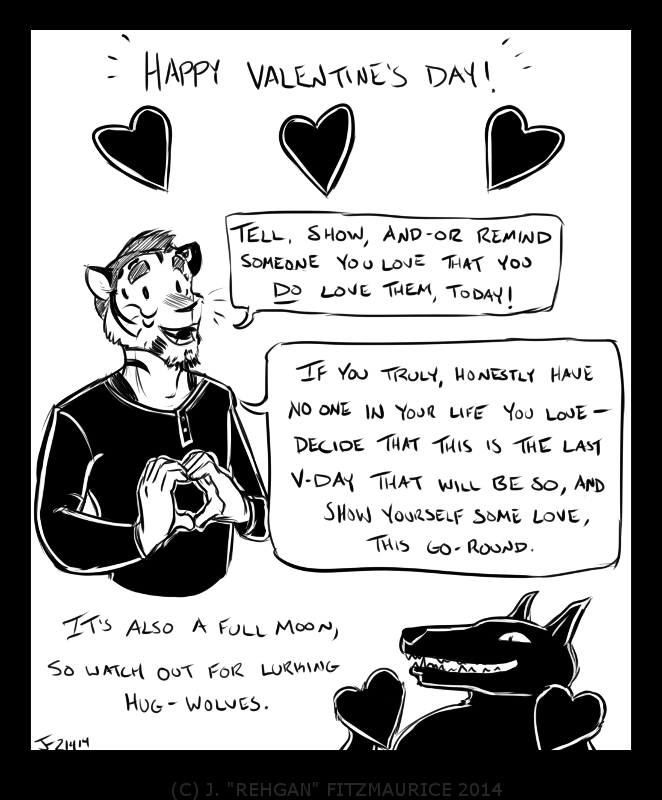 HAPPY VALENTINE'S DAY!
TELL, SHOW, AND-OR REMIND
SOMEONE YOU LOVE THAT YOU
DO LOVE THEM, TODAY!
IF YOU TRULY, HONESTLY HAVE
NO ONE IN YOUR LIFE YOU LOVE—
DECIDE THAT THIS IS THE LAST
V-DAY THAT WILL BE SO, AND
SHOW YOURSELF SOME LOVE,
THIS GO-ROUND.
IT'S ALSO A FULL MOON,
SO WATCH OUT FOR LURKING
HUG-WOLVES.
JF21414
(C) J. "REHGAN" FITZMAURICE 2014